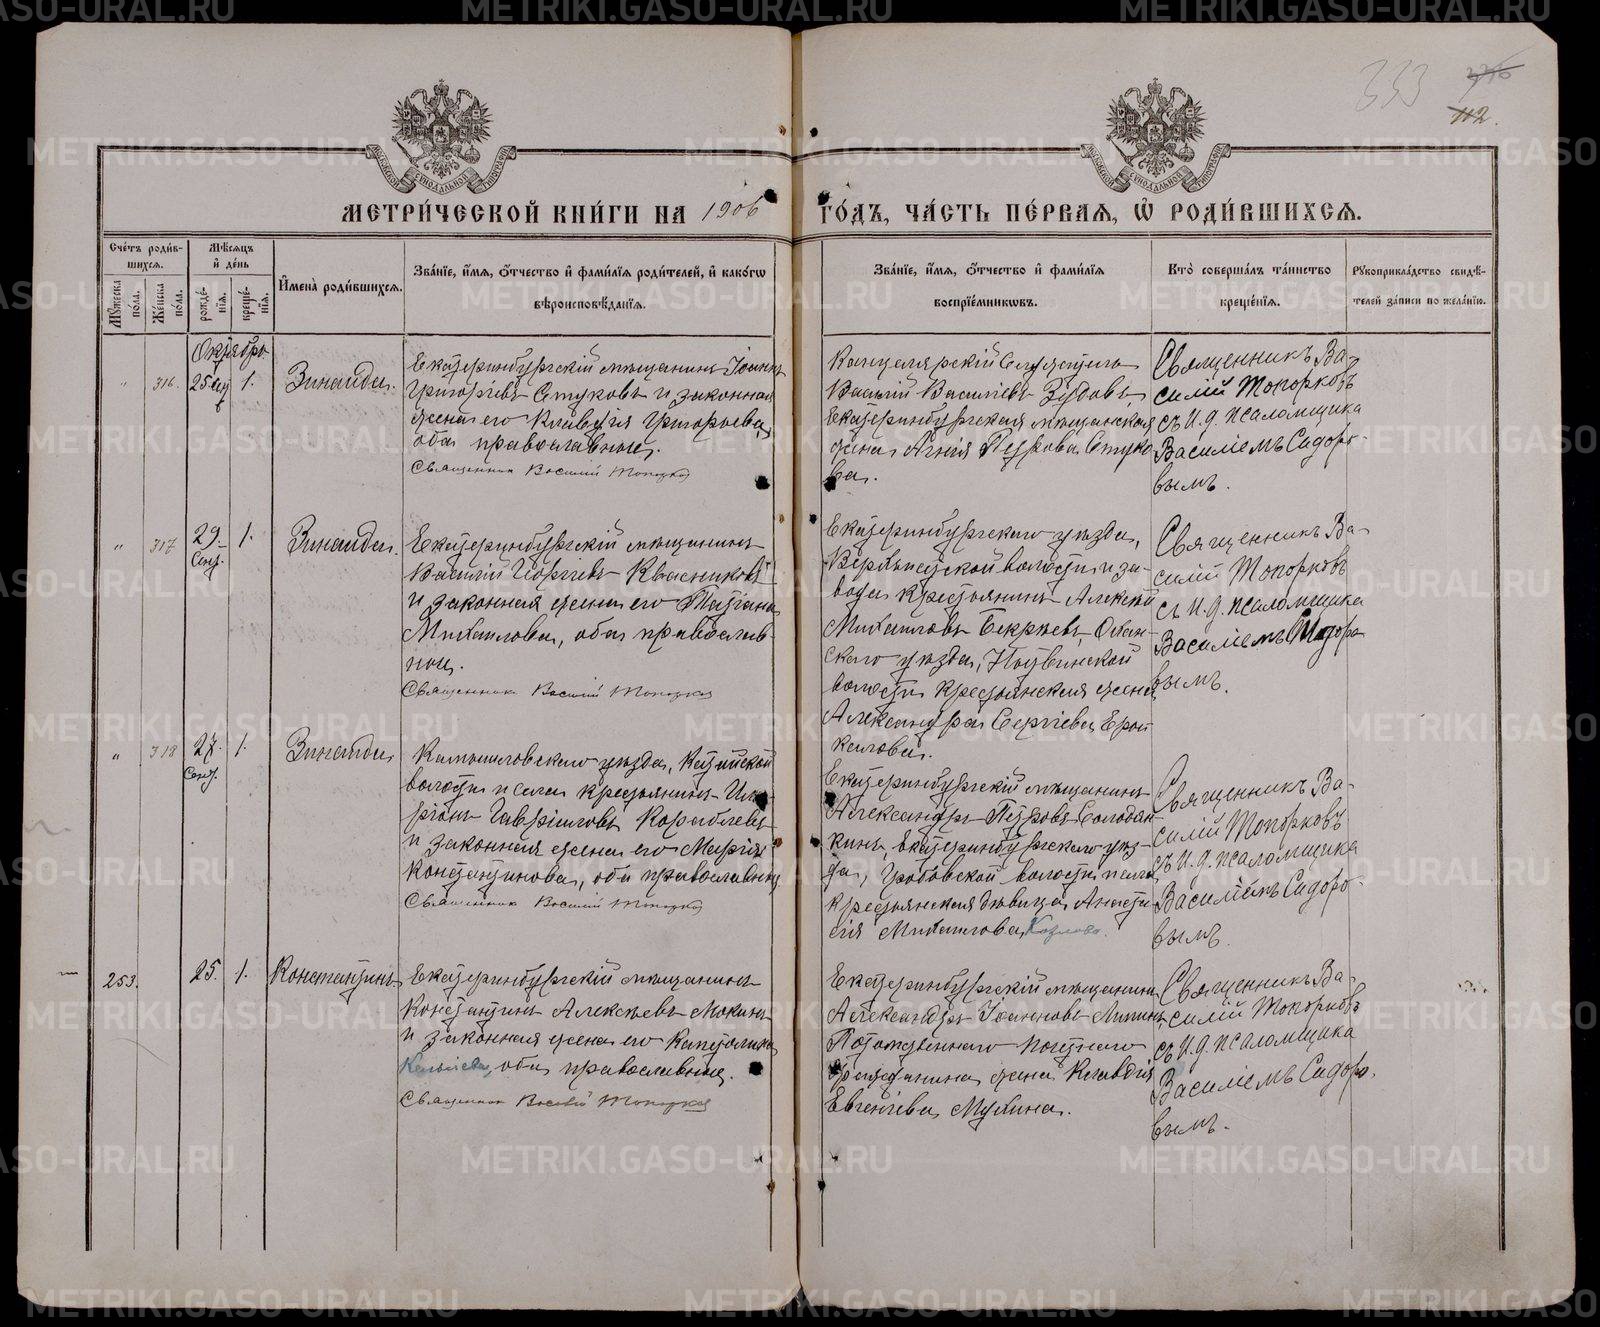 METRIKI.GASO-URAL.RU
333
112.
МЕТРИ́ЧЕСКОЙ КНИ́ГИ НА 1906 ГО́ДЪ, ЧА́СТЬ ПЕ́РВАЯ, Ѿ РОДИ́ВШИХСЯ.
Сче́тъ роди́вшихся.
Мꙋ́жеска по́ла.
Же́нска по́ла.
Мѣ́сяцъ и҆ де́нь
рожде́нїя.
креще́нїя.
И҆мена̀ роди́вшихся.
Зва́нїе, и҆́мя, ѻ҆́тчество и҆ фами́лїя роди́телей, и҆ како́гѡ
вѣроисповѣ́данїя.
Зва́нїе, и҆́мя, ѻ҆́тчество и҆ фами́лїя
воспрїе́мникѡвъ.
Кто̀ соверша́лъ та́инство
креще́нїя.
Рꙋкоприкла́дство свидѣ́-
телей за́писи по жела́нїю.
Октябрь
" 316. 25 сен 1. Зинаида.
Екатеринбургскій мѣщанинъ Іоаннъ
Григоріевъ Стуковъ и законная
жена его Клавдія Григорьева,
оба православные.
Священникъ Василій Топорков
Канцелярскій Служитель
Василій Васильевъ Зубовъ,
Екатеринбургская мѣщанская
жена Агнія Петрова Стуко
ва.
Священникъ Ва-
силій Топорковъ
съ И. д. псаломщика
Василіемъ Сидоро-
вымъ.
" 317 29 Сент. 1. Зинаида.
Екатеринбургскій мѣщанинъ
Василій Георгіевъ Квасниковъ
и законная жена его Татіана
Михаилова, оба православ-
ные.
Священникъ Василій Топорков
Екатеринбургскаго уѣзда,
Верхъисетской волости и за-
вода крестьянинъ Алексѣй
Михаиловъ Бекряевъ, Охан-
скаго уѣзда,
волости крестьянская жена
Александра Сергіева
Священникъ Ва-
силій Топорковъ
съ И. д. псаломщика
Василіемъ Сидоро
вымъ.
" 318 27. Сент. 1. Зинаида
Камышловскаго уѣзда,
волости и села крестьянинъ
Гавріиловъ Кораблевъ
и законная жена его Марія
Константинова, оба православные
Священникъ Василій Топорков
Екатеринбургскій мѣщанинъ
Александръ Петровъ Солодян
кинъ, Екатеринбургскаго уѣз-
да, Гробовской волости и села,
крестьянская дѣвица Анаста
сія Михаилова Козлова.
Священникъ Ва-
силій Топорковъ
съ И. д. псаломщика
Василіемъ Сидоро-
вымъ.
253. 25. 1. Константинъ
Екатеринбургскій мѣщанинъ
Константинъ Алексѣевъ Мокинъ
и законная жена его Капитолина
оба православные.
Священникъ Василій Топорков
Екатеринбургскій мѣщанинъ
Александръ Іоанновъ
Потомственнаго Почетнаго
гражданина жена Клавдія
Евгеніева Мухина.
Священникъ Ва-
силій Топорковъ
съ И. д. псаломщика
Василіемъ Сидоро-
вымъ.